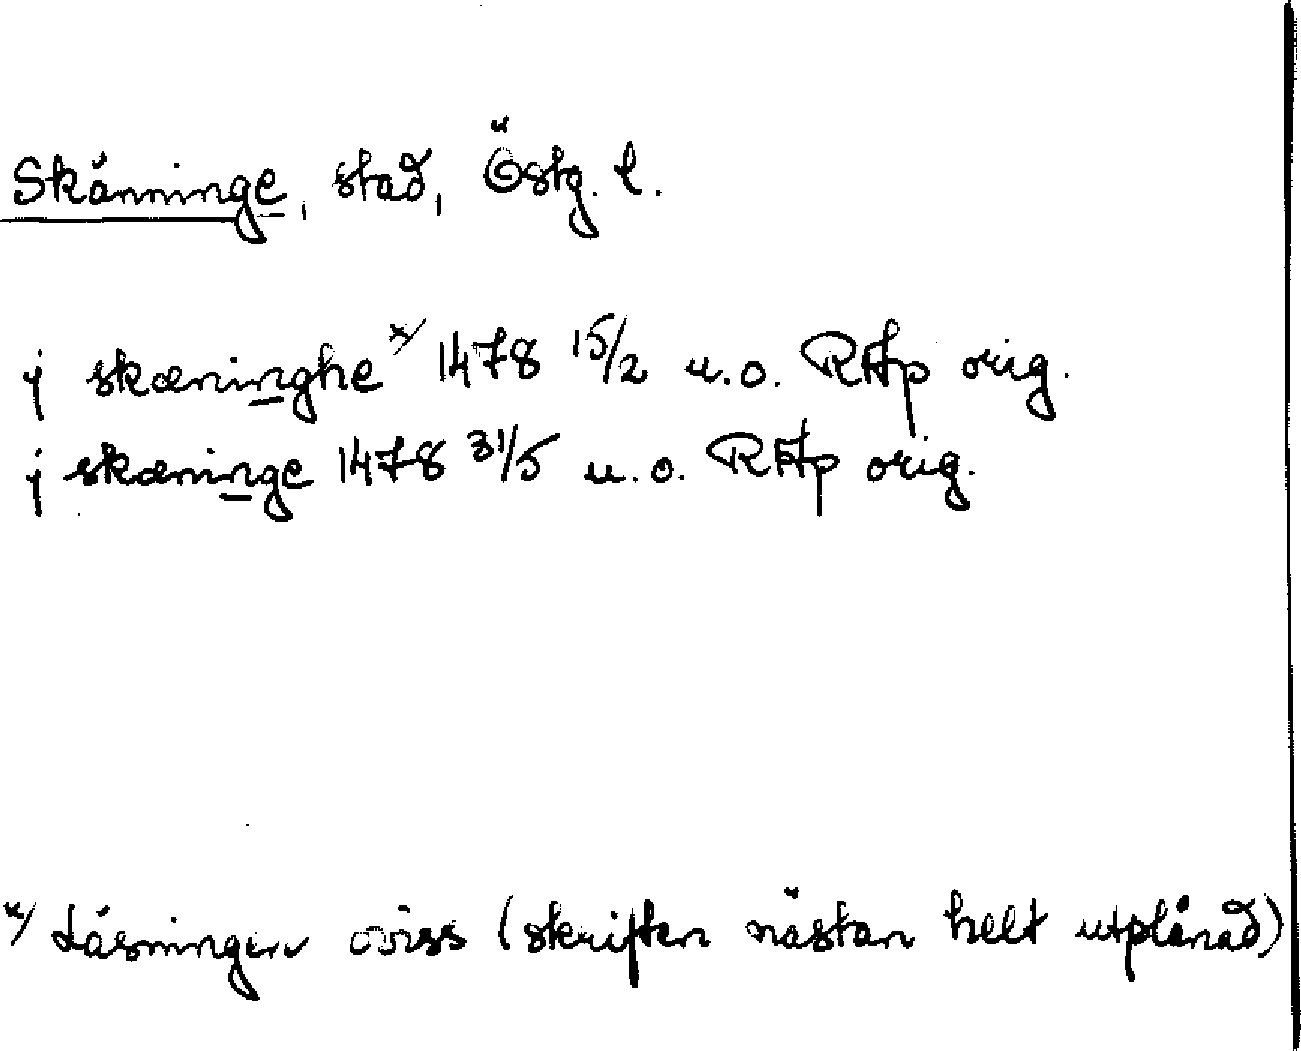 Skänninge, stad, Östg. l.
j skæninghe x/ 1478 15/2 u.o. RAp orig.
j skæninge 1478 31/5 u.o. RAp orig.
x/ Läsningen oviss (skriften nästan helt utplånad)